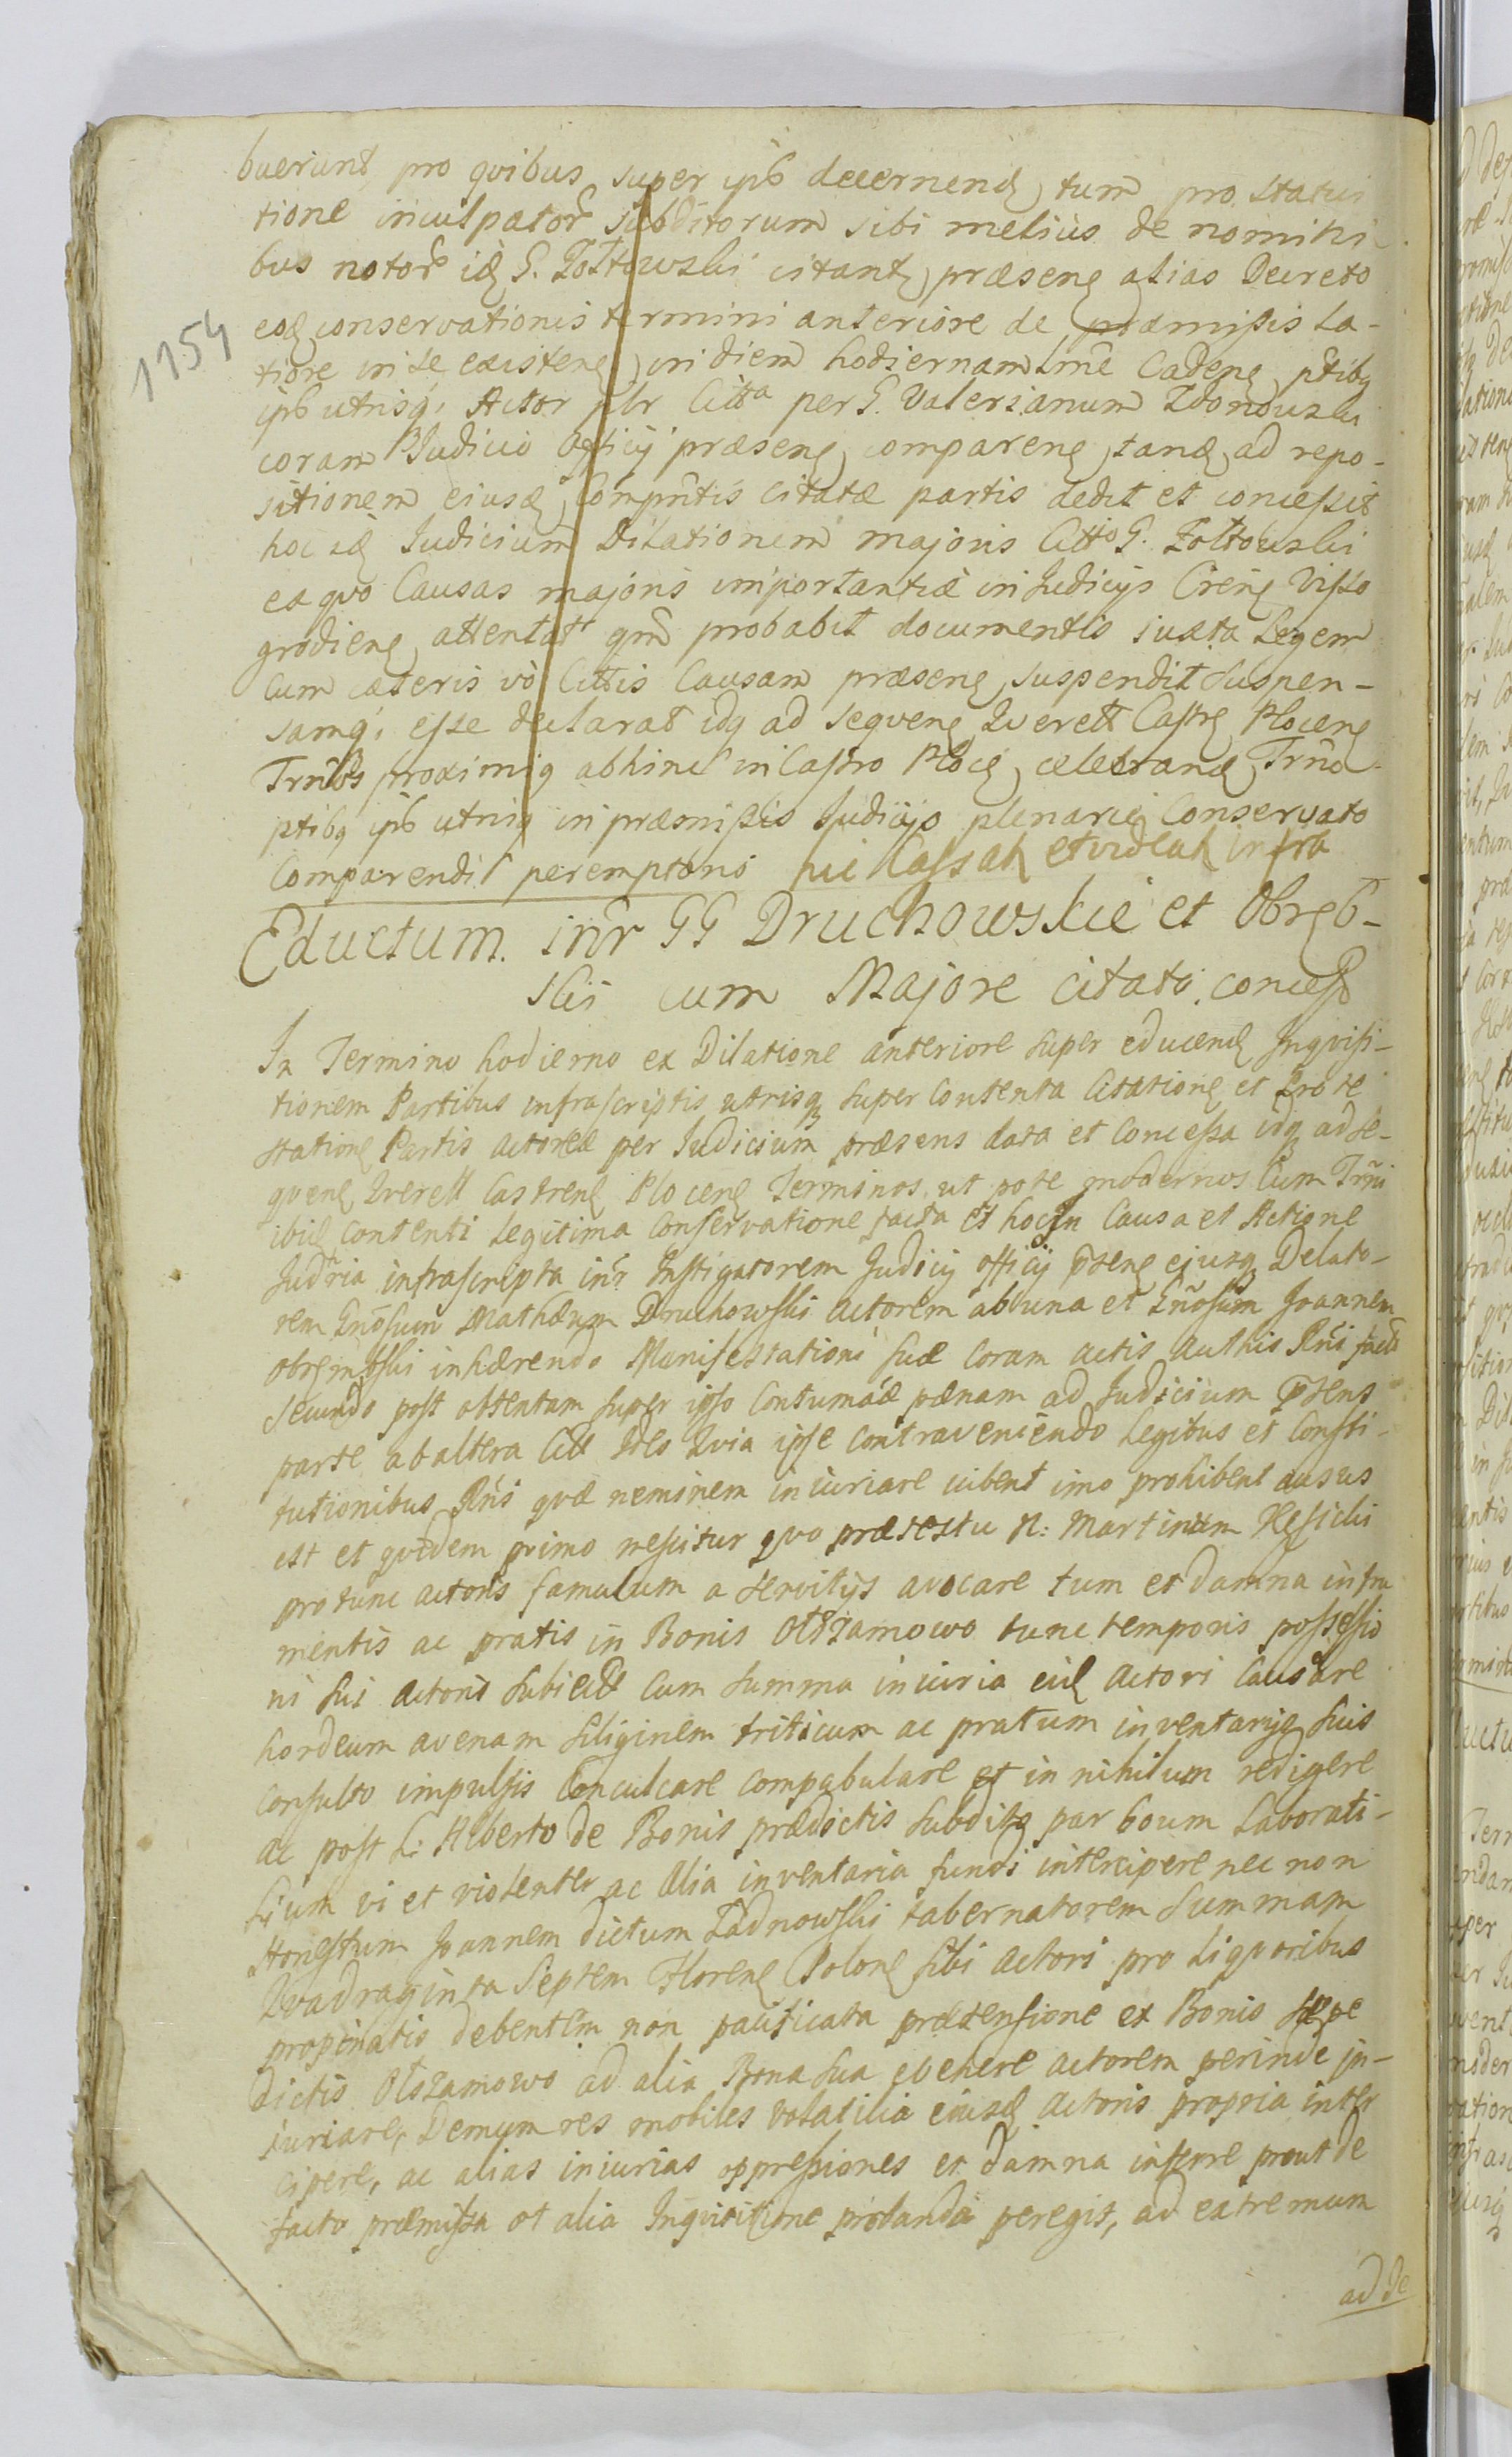 1154
buerunt pro quibus super ips decernend tum pro statui
tione inculpator subditorum sibi melius de nomini
bus notor id G. Zołtowski citant præsen alias Decreto
eod conservationis termini anteriore de præmissis la-
tiore in se existen in diem hodiernam Caden ptibq
ips utrisq Actor plr Citta per G. Valerianum Zdonowski
coram Judicio Officij præsen comparen tand ad repo-
sitionem eiusd comprntis citatæ partis dedit et concessit
hoc id Judicium Dilationem majoris Citto G. Zołtowski
ex quo Causas majoris importantiæ in Judicijs Visso
grodien attentat qm probabit documentis iuxta Legem
Cum cæteris vo Cittis Causam præsen suspendit suspen-
samq esse declarat idq ad sequen Querell Castr Plocen
Trmos proximiq abhinc in Castro Ploc celebrand Trmo
ptibq ips utrisq in præmissis Judicijs plenarie Conservato
Comparendi peremptorio hic Cassat et videat infra
Eductum inr GG Druchowskie et Obręb-
ski cum Majore citato concess
In Termino hodierno ex Dilatione anteriore super educend Inqvisi-
tionem Partibus infrascriptis utrisq super Contenta Citatione et Prote
statione Partis actoreæ per Judicium præsens data et Concessa idq ad se-
qvens Qverell Castrens Plocens Terminos ut pote modernos Cum Trmi
ibid contenti Legitima Conservatione facta et hoc in Causa et Actione
Judria infrascripta inr Instigatorem Judicij officij psens ejusq Delato-
rem Gnosum Mathæum Druchowski actorem ab una et Gnosum Joannem
Obrembski inhærendo Manifestationi suæ Coram actis Authis Rni facta
Secundo post obtentam super ipso Contumaciæ pænam ad Judicium psens
parte ab altera Citt Ideo Quia ipse Contraveniendo Legibus et Consti-
tutionibus Rni quæ neminem iniuriare iubent imo prohibent ausus
est et quidem primo nescitur quo prætextu N: Martinum
pro tunc actoris famulum a servitijs avocare tum et damna in fru
mentis ac pratis in Bonis Olszamowo tunc temporis possessio
ni sui actoris subiect Cum summa iniuria eid Actori Causare
hordeum avenam siliginem triticum ac pratum inventarijs suis
Consulto impulsis Conculcare compabulare et in nihilum redigere
ac post L: Alberto de Bonis prædictis subdito par boum Laborati-
lium vi et violenter ac alia inventaria fundi intercipere nec non
Honestum Joannem dictum Ladnowski tabernatorem Summam
Quadraginta Septem Floren Polon sibi Actori pro Liqvoribus
propinatis debentem non pacificata prætensione ex Bonis sæpe
dictis Olszamowo ad alia Bona sua evehere actorem perinde in-
iuriare, Demum res mobiles volatilia eiusd Actoris propria inter
cipere, ac alias iniurias oppressiones et damna inferre prout de
facto præmissa et alia Inqvisitione probanda peregit, ad extremum
ad De